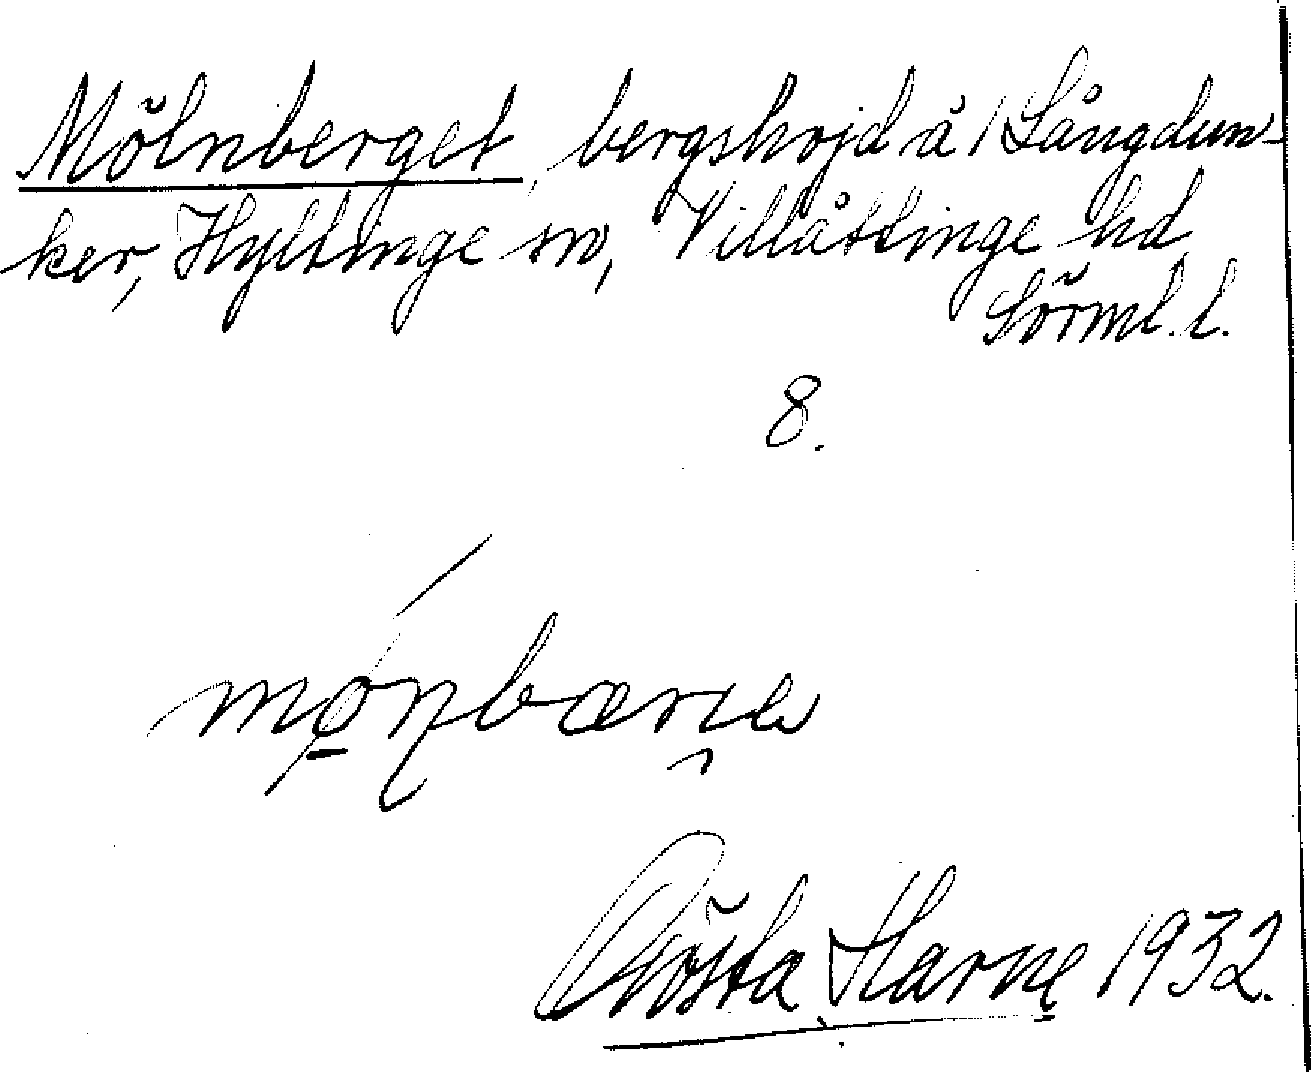 Mölnberget, bergshöjd å /Långdun-
ker, Hyltinge sn, Villåttinge hd,
Sörml. l.
8.
Gösta Harne 1932.